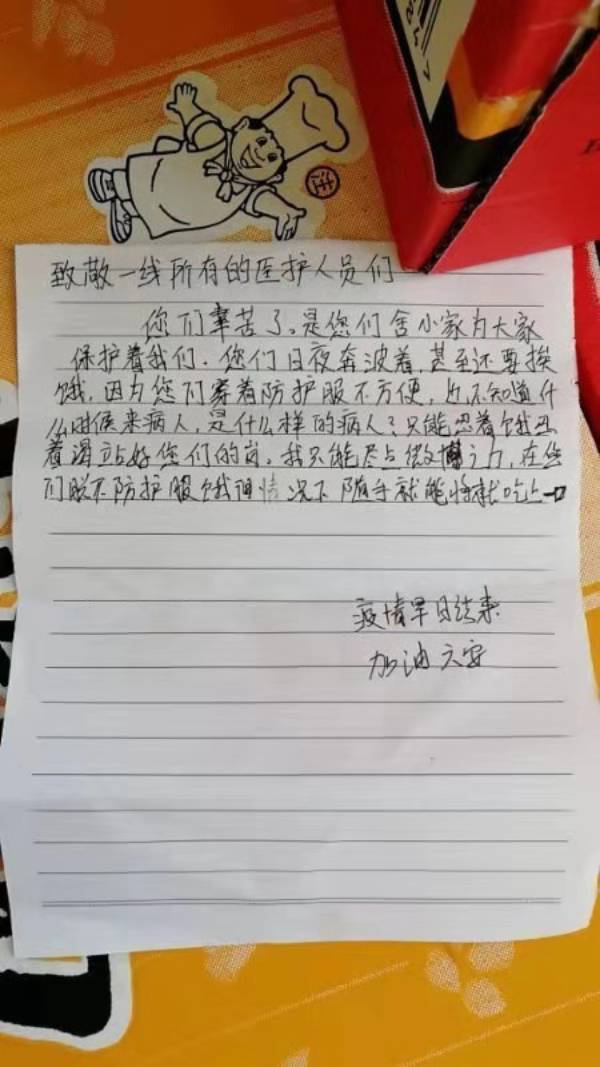 致敬一线所有的医护人员们
你们辛苦了。是您们舍小家为大家
保护着我们.您们日夜奔波着,甚至还要挨
饿,因为您们穿着防护服不方便,也不知道什
么时候来病人,是什么样的病人?只能忍着饿
着渴站好您们的岗。我只能尽点微博之力,在您
们脱不防护服饿的情况下随手就能将就吃上一口
疫情早日结束
加油六安
注